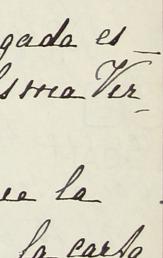 gada es_
misma Ver-
ue la
la carta